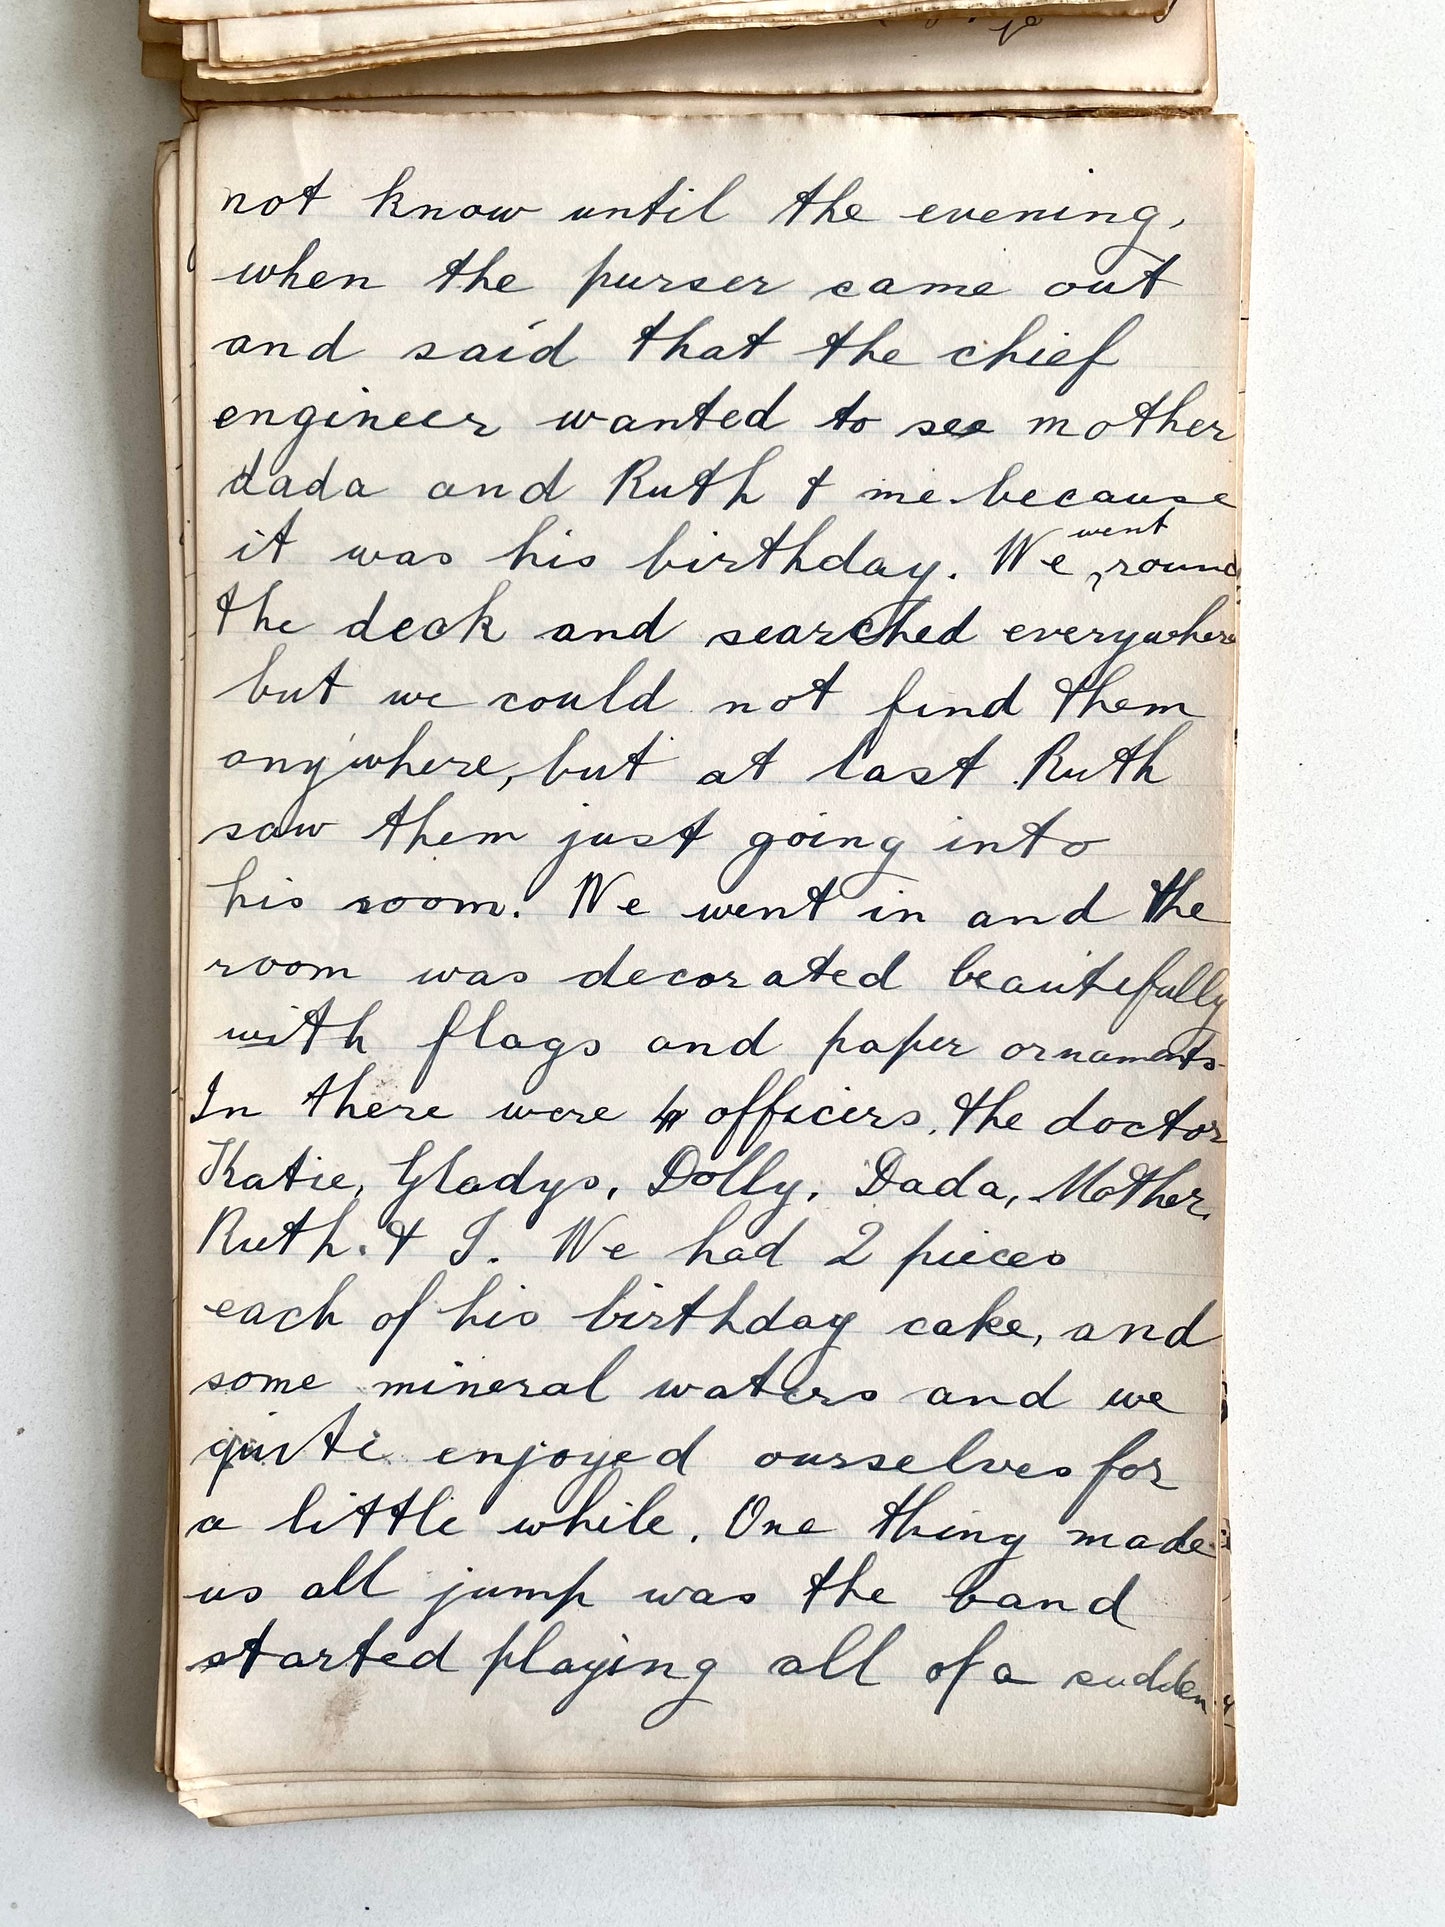 not know until the evening,
when the purser came out
and said that the chief
engineer wanted to see mother
dada and Ruth & me because
it was his birthday. We went round
the deck and searched everywhere
but we could not find them
anywhere, but at last Ruth
saw them just going into
his room. We went in and the
room was decorated beautifully
with flags and paper ornaments.
In there were 4 officers, the doctor
Katie, Gladys, Dolly, Dada, Mother,
Ruth. & I. We had 2 pieces
each of his birthday cake, and
some mineral waters and we
quite enjoyed ourselves for
a little while. One thing made
us all jump was the band
started playing all of a sudden